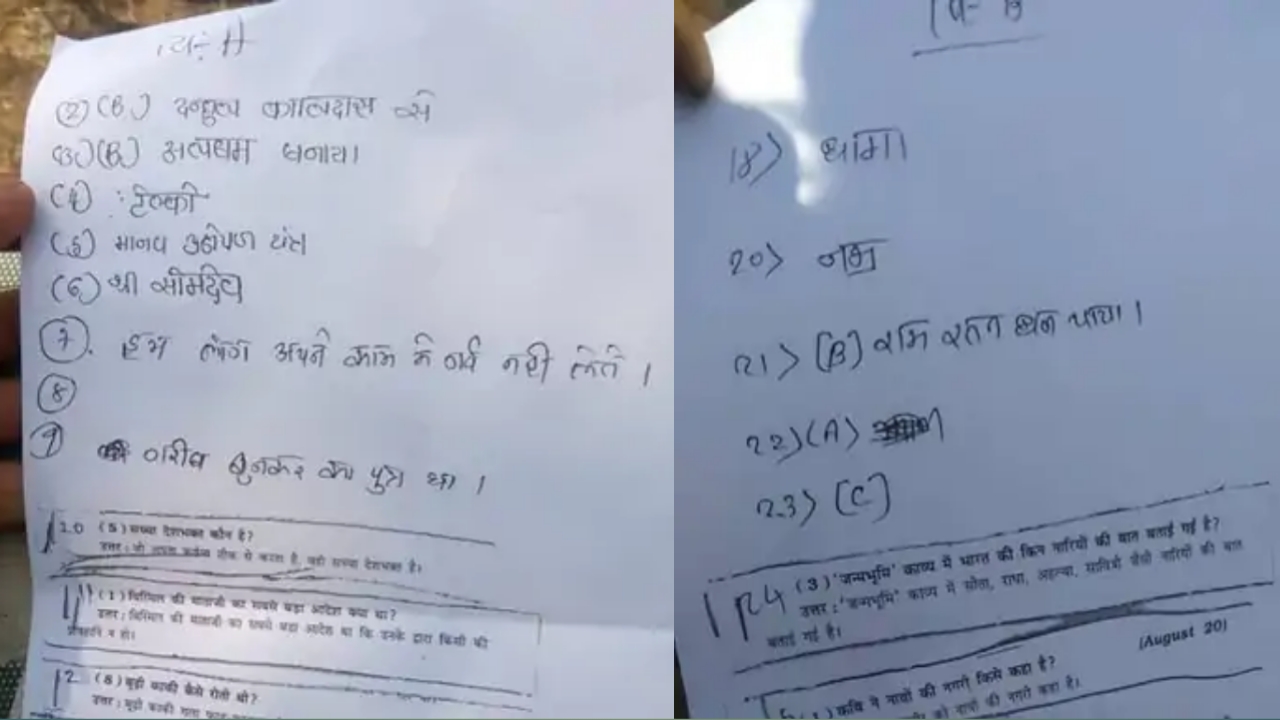 (2) (B)
(3) (B) बनाया
(4)
(5) मानव
(6) श्री सोमदेव
7. हम लोग अपने काम में नहीं लेते ।
8
9 गरीब बुनकर का पुत्र था ।
10 (5) सच्चा देशभक्त कौन है?
उत्तर : जो अपना कर्तव्य ठीक से करता है, वही सच्चा देशभक्त है।
11 (1) बिस्मिल की माताजी का सबसे बड़ा आदेश क्या था?
उत्तर : बिस्मिल की माताजी का सबसे बड़ा आदेश था कि उनके द्वारा किसी की
प्राणहानि न हो।
12 (8) बूढ़ी काकी कैसे रोती थी?
उत्तर : बूढ़ी काकी गला फाड़
18) धाम।
20) नभ
21) (B) रतन धन पायो।
22) (A)
23) (C)
24 (3) 'जन्मभूमि' काव्य में भारत की किन नारियों की बात बताई गई है?
उत्तर : 'जन्मभूमि' काव्य में सीता, राधा, अहल्या, सावित्री जैसी नारियों की बात
बताई गई है।
(August 20)
कवि ने नावों की नगरी किसे कहा है?
को नावों की नगरी कहा है।